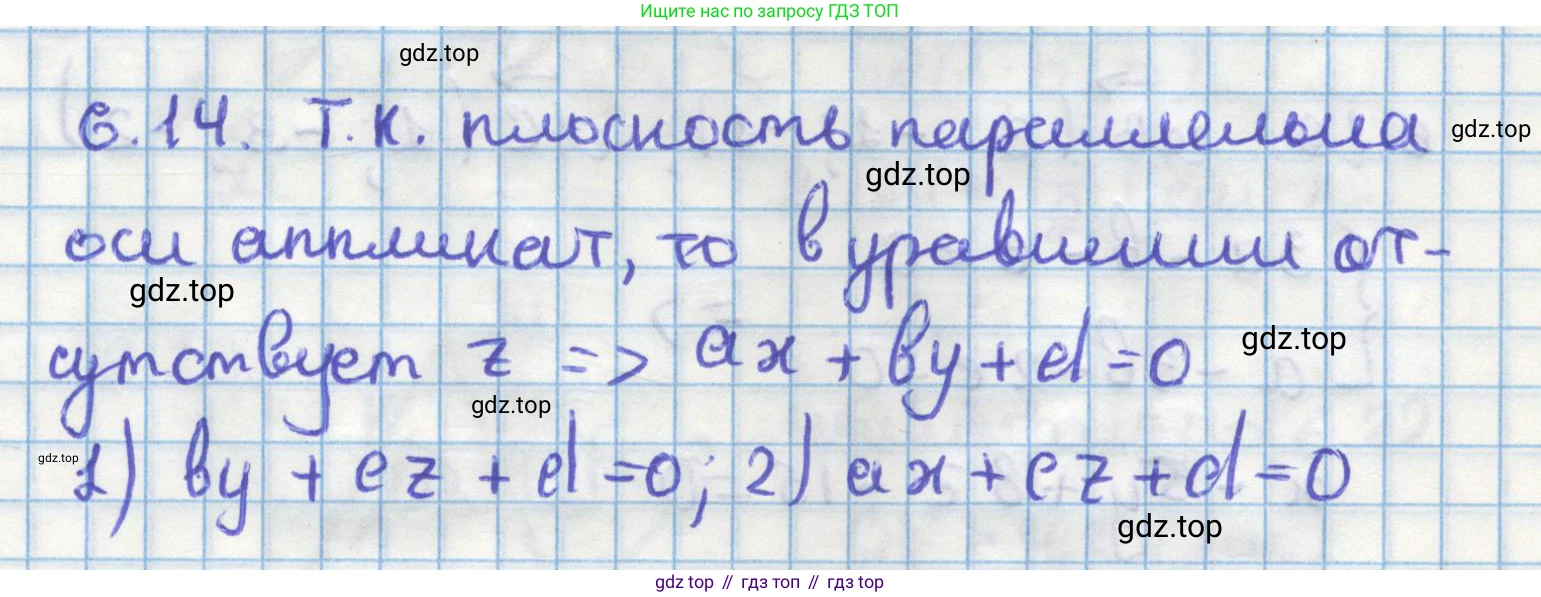 Ищите нас по запросу ГДЗ ТОП
gdz.top
6.14. Т.к. плоскость параллельна gdz.top
gdz.top
оси аппликат, то в уравнении от-
gdz.top
сутствует z => ax + by + d = 0 gdz.top
gdz.top
gdz.top 1) by + cz + d = 0; 2) ax + cz + d = 0
gdz.top
gdz top // гдз топ // гдз top